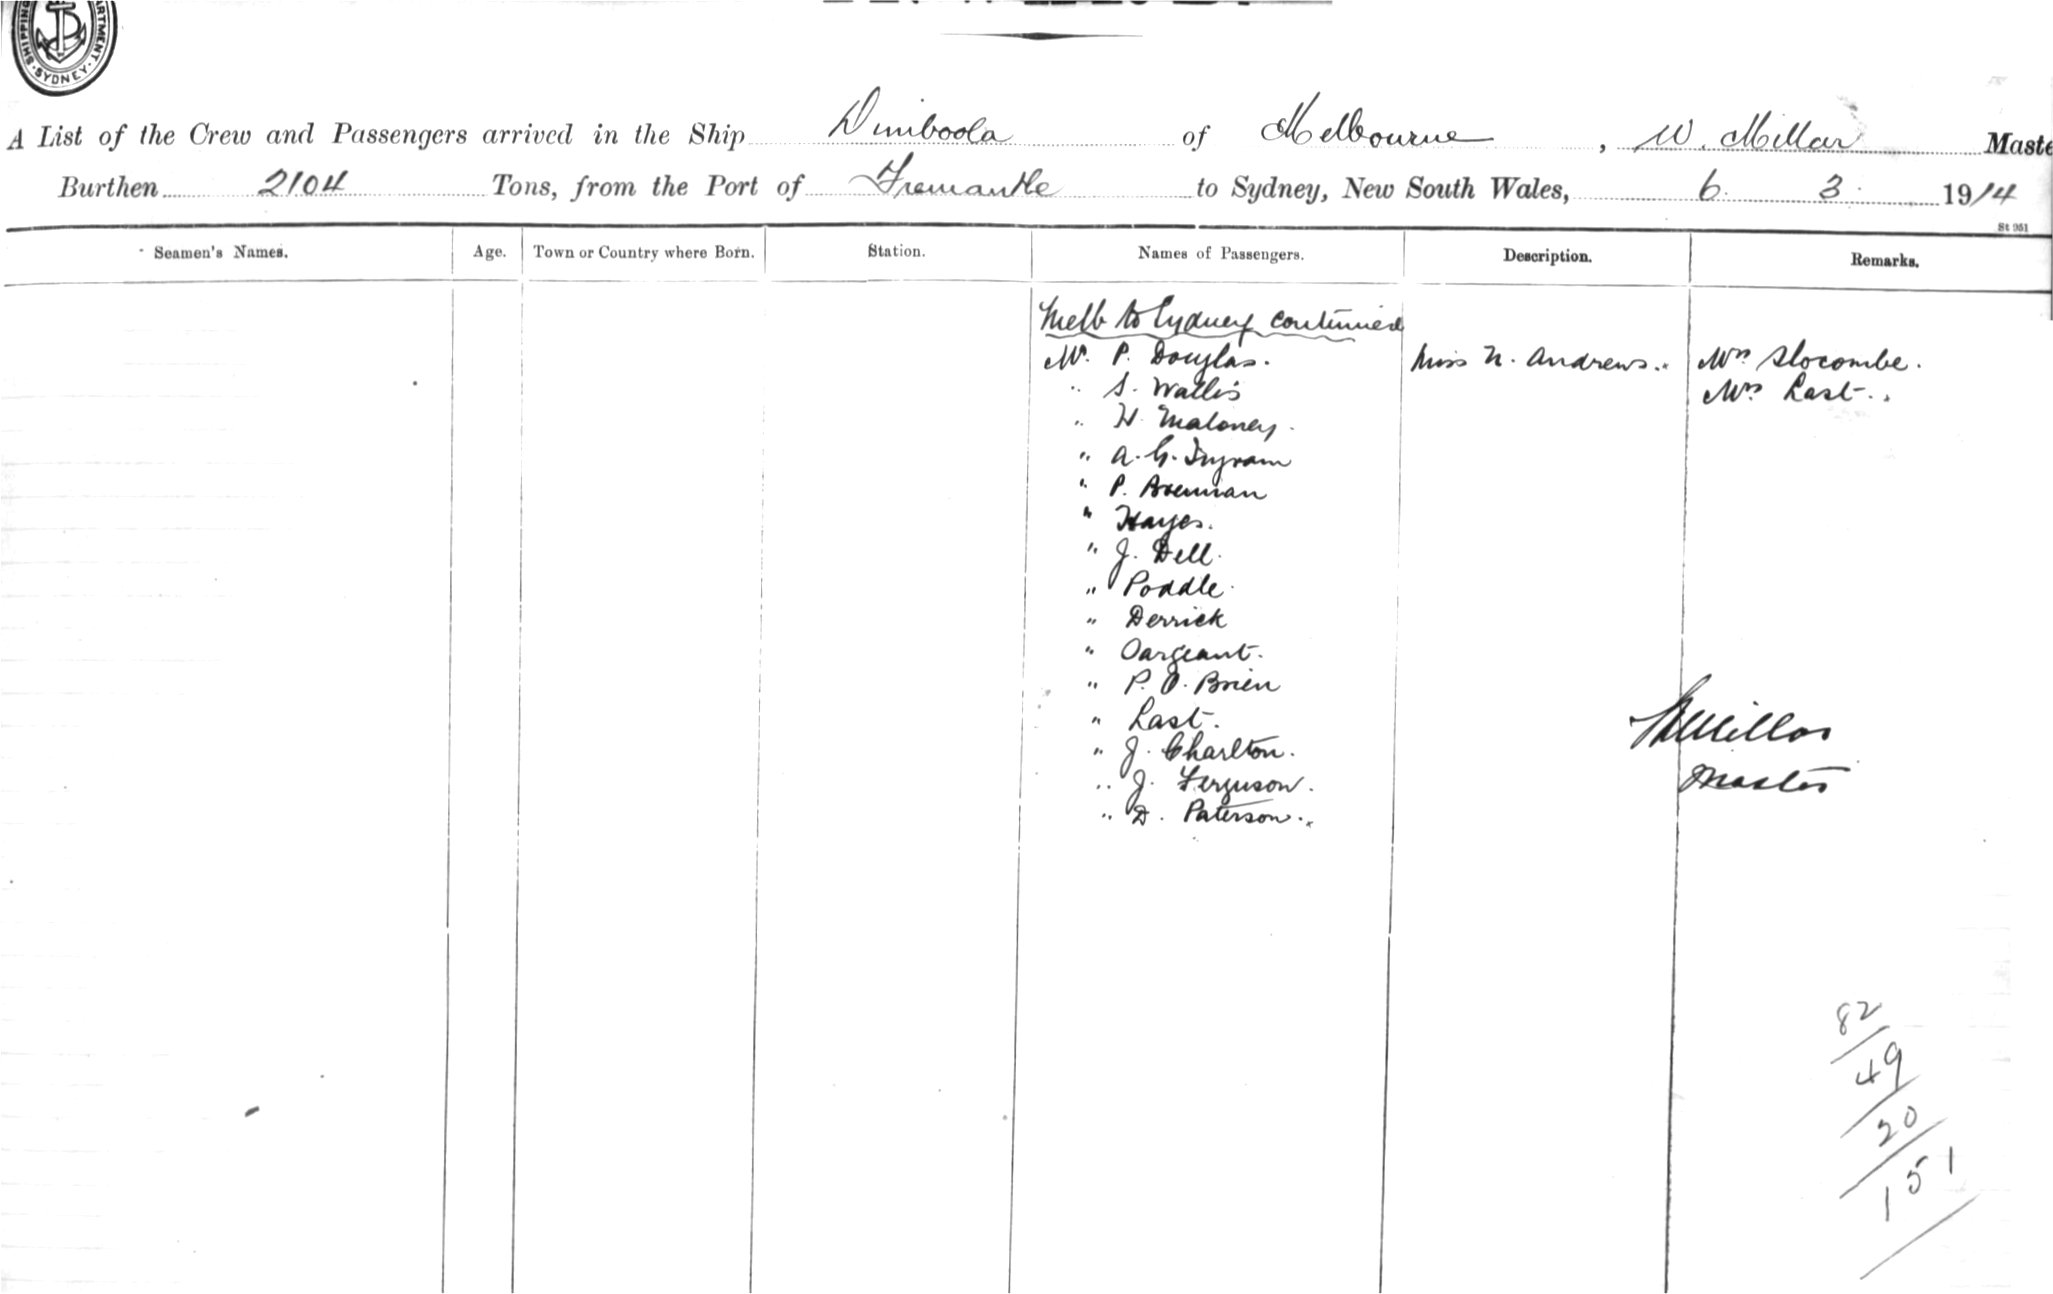 SHIPPING DEPARTMENT. SYDNEY.
A List of the Crew and Passengers arrived in the Ship Dimboola of Melbourne, W. Millar Maste
Burthen 2104 Tons, from the Port of Fremantle to Sydney, New South Wales, 6. 3. 1914
St 951
Seamen's Names. Age. Town or Country where Born. Station. Names of Passengers. Description. Remarks.
Melb to Sydney continued
Mr. P. Douglas. Miss N. Andrews. Mrs Slocombe.
" S. Wallis Mrs Last.
" H. Maloney.
" A. G. Ingram
" P. Brennan
" Hayes.
" J. Dell.
" Poddle.
" Derrick
" Sargeant.
" P. O. Brien
" Last.
" J. Charlton.
" J. Ferguson.
" D. Paterson.
W Millar
Master
82
49
20
151